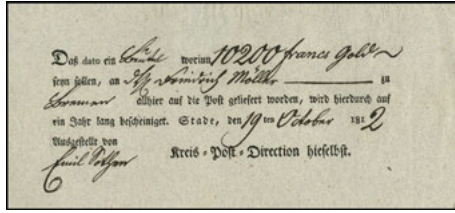 Daß dato ein Beutel worinn 10200 francs Gold
seyn sollen, an Friedrich Möller zu
Bremen allhier auf die Post geliefert worden, wird hierdurch auf
ein Jahr lang bescheiniget. Stade, den 19ten October 1812
Ausgestellt von
Kreis-Post-Direction hieselbst.
Emil